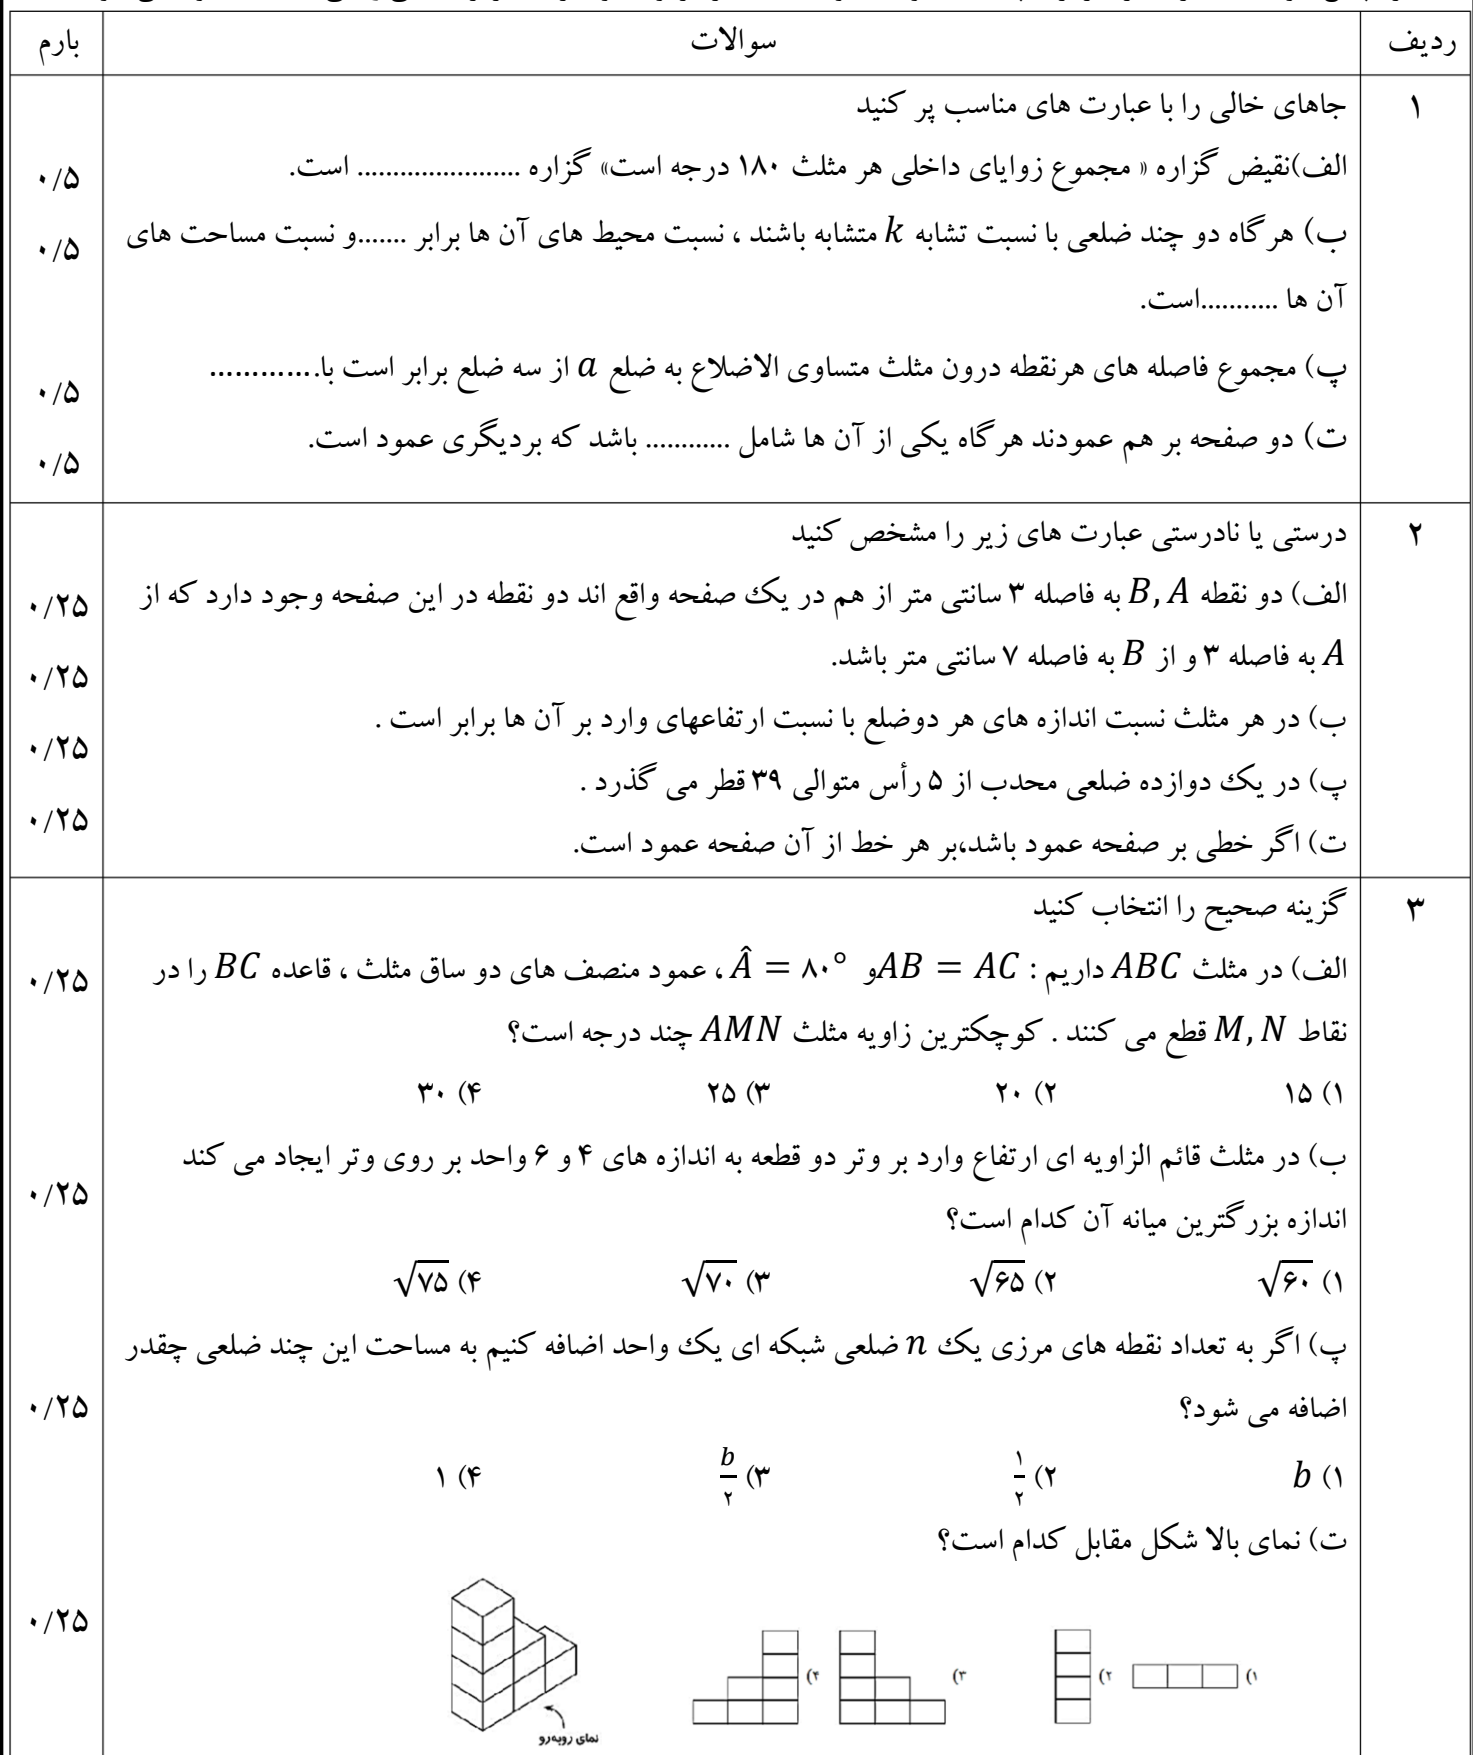 ردیف سوالات بارم
۱ جاهای خالی را با عبارت های مناسب پر کنید
الف)نقیض گزاره « مجموع زوایای داخلی هر مثلث ۱۸۰ درجه است» گزاره ....................... است. ۰/۵
ب) هرگاه دو چند ضلعی با نسبت تشابه k متشابه باشند ، نسبت محیط های آن ها برابر .......و نسبت مساحت های ۰/۵
آن ها ...........است.
پ) مجموع فاصله های هرنقطه درون مثلث متساوی الاضلاع به ضلع a از سه ضلع برابر است با............. ۰/۵
ت) دو صفحه بر هم عمودند هرگاه یکی از آن ها شامل ............ باشد که بردیگری عمود است. ۰/۵
۲ درستی یا نادرستی عبارت های زیر را مشخص کنید
الف) دو نقطه B, A به فاصله ۳ سانتی متر از هم در یک صفحه واقع اند دو نقطه در این صفحه وجود دارد که از ۰/۲۵
A به فاصله ۳ و از B به فاصله ۷ سانتی متر باشد. ۰/۲۵
ب) در هر مثلث نسبت اندازه های هر دوضلع با نسبت ارتفاعهای وارد بر آن ها برابر است . ۰/۲۵
پ) در یک دوازده ضلعی محدب از ۵ رأس متوالی ۳۹ قطر می گذرد .
ت) اگر خطی بر صفحه عمود باشد،بر هر خط از آن صفحه عمود است. ۰/۲۵
۳ گزینه صحیح را انتخاب کنید
الف) در مثلث ABC داریم : AB = AC و Â = ۸۰° ، عمود منصف های دو ساق مثلث ، قاعده BC را در ۰/۲۵
نقاط M, N قطع می کنند . کوچکترین زاویه مثلث AMN چند درجه است؟
۱) ۱۵ ۲) ۲۰ ۳) ۲۵ ۴) ۳۰
ب) در مثلث قائم الزاویه ای ارتفاع وارد بر وتر دو قطعه به اندازه های ۴ و ۶ واحد بر روی وتر ایجاد می کند ۰/۲۵
اندازه بزرگترین میانه آن کدام است؟
۱) √۶۰ ۲) √۶۵ ۳) √۷۰ ۴) √۷۵
پ) اگر به تعداد نقطه های مرزی یک n ضلعی شبکه ای یک واحد اضافه کنیم به مساحت این چند ضلعی چقدر
اضافه می شود؟ ۰/۲۵
۱) b ۲) ۱/۲ ۳) b/۲ ۴) ۱
ت) نمای بالا شکل مقابل کدام است؟
۰/۲۵
۱) ۲) ۳) ۴)
نمای روبه‌رو